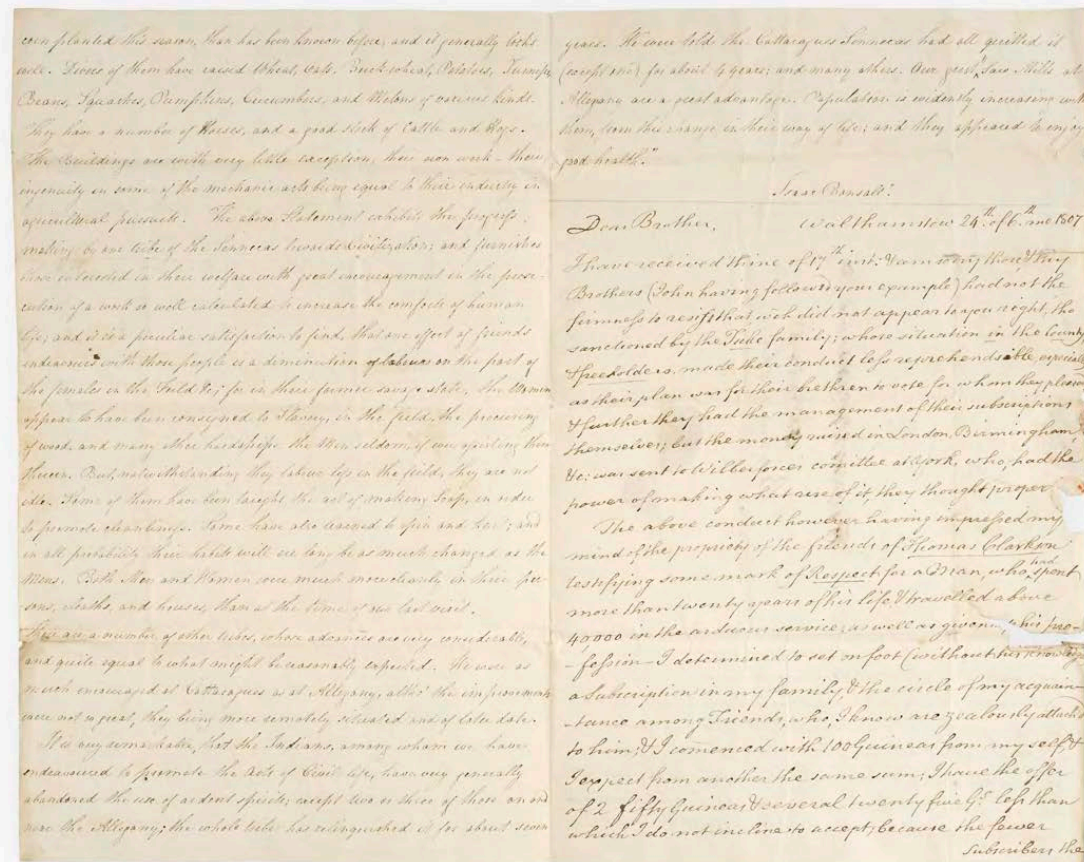 corn planted this season, than has been known before; and it generally looks
well. Divers of them have raised Wheat, Oats, Buckwheat, Potatoes, Turnips,
Beans, Squashes, Pumpkins, Cucumbers, and Melons of various kinds.
They have a number of Horses, and a good stock of Cattle and Hogs.
The Buildings are with very little exception, their own work – their
ingenuity in some of the mechanic arts being equal to their industry in
agricultural pursuits. The above Statement exhibits the progress
making by one tribe of the Sennecas towards Civilization; and furnishes
those interested in their welfare with great encouragement in the prose-
cution of a work so well calculated to increase the comforts of human
life; and it is a peculiar satisfaction to find, that one effect of friends
endeavors with those people is a diminution of labour on the part of
the females in the Field &c; for in their former savage state, the Women
appear to have been consigned to Slavery, in the field, the procuring
of wood, and many other hardships, the Men seldom, if ever, assisting them
therein. But, notwithstanding they labour less in the field, they are not
idle. Some of them have been taught the art of making Soap, in order
to promote cleanliness. Some have also learned to spin and ; and
in all probability their habits will ere long be as much changed as the
Mens. Both Men and Women were much more cleanly in their per-
sons, cloths, and houses, than at the time of our last visit.
There are a number of other tribes, whose advances are very considerable,
and quite equal to what might be reasonably expected. We were as
much encouraged at Cattaraugues as at Allegany, altho' the improvements
were not so great, they being more remotely situated and of later date.
It is very remarkable, that the Indians, among whom we have
endeavoured to promote the Arts of Civil life, have very generally
abandoned the use of ardent spirits; except two or three of those on and
near the Allegany; the whole tribe has relinquished it for about seven
years. We were told the Cattaraugues Sennecas had all quitted it
(except one) for about 4 years; and many others. Our Saw Mills at
Allegany are a great advantage. Population is evidently increasing with
them, from this change in their way of life; and they appeared to enjoy
good health."
Isaac Bonsall.
Dear Brother, Walthamstow 24th. of 6th. mo 1807
I have received thine of 17th inst: & am sorry thou, & thy
Brothers (John having followed your example) had not the
firmness to resist that wch did not appear to you right, tho
sanctioned by the Tuke family; whose situation in the County
& freeholders, made their conduct less reprehensible, especially
as their plan was for their brethren to vote for whom they pleased
& further they had the management of their subscriptions
themselves; but the money raised in London, Birmingham,
&c; was sent to Wilberforces comittee at York, who, had the
power of making what use of it, they thought proper
The above conduct however having impressed my
mind of the propriety of the friends of Thomas Clarkson
testifying some mark of Respect for a Man, who, had spent
more than twenty years of his life, & travelled above
40,000 in the arduous service, as well as given his pro-
-fession – I determined to set on foot (without his knowledge)
a Subscription in my family & the circle of my acquain-
-tance among Friends, who, I know are zealously attach
to him; & I comenced with 100 Guineas from my self, &
I expect from another the same sum; I have the offer
of 2 fifty Guineas & several twenty five Gs. less than
which I do not incline to accept, because the fewer
Subscribers the